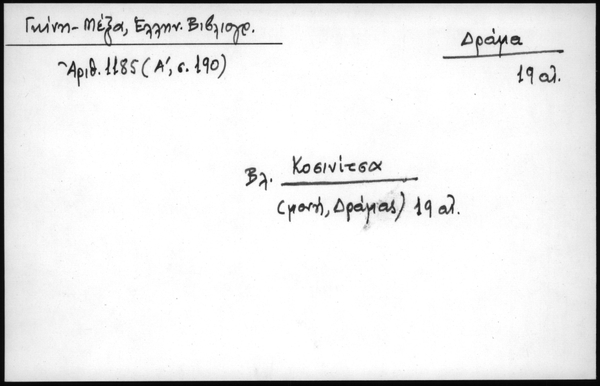 Γκίνη-Μέξα, Ἑλλην. Βιβλιογρ.
Ἀριθ. 1185 (Α΄, σ. 190)
Δράμα
19 αἰ.
Βλ. Κοσινίτσα
(μονή, Δράμας) 19 αἰ.